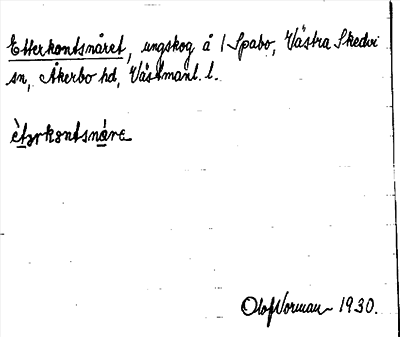 Etterkontsnåret, ungskog å 1 Spabo, Västra Skedvi
sn, Åkerbo hd, Västmanl. l.
Olof Norman 1930.